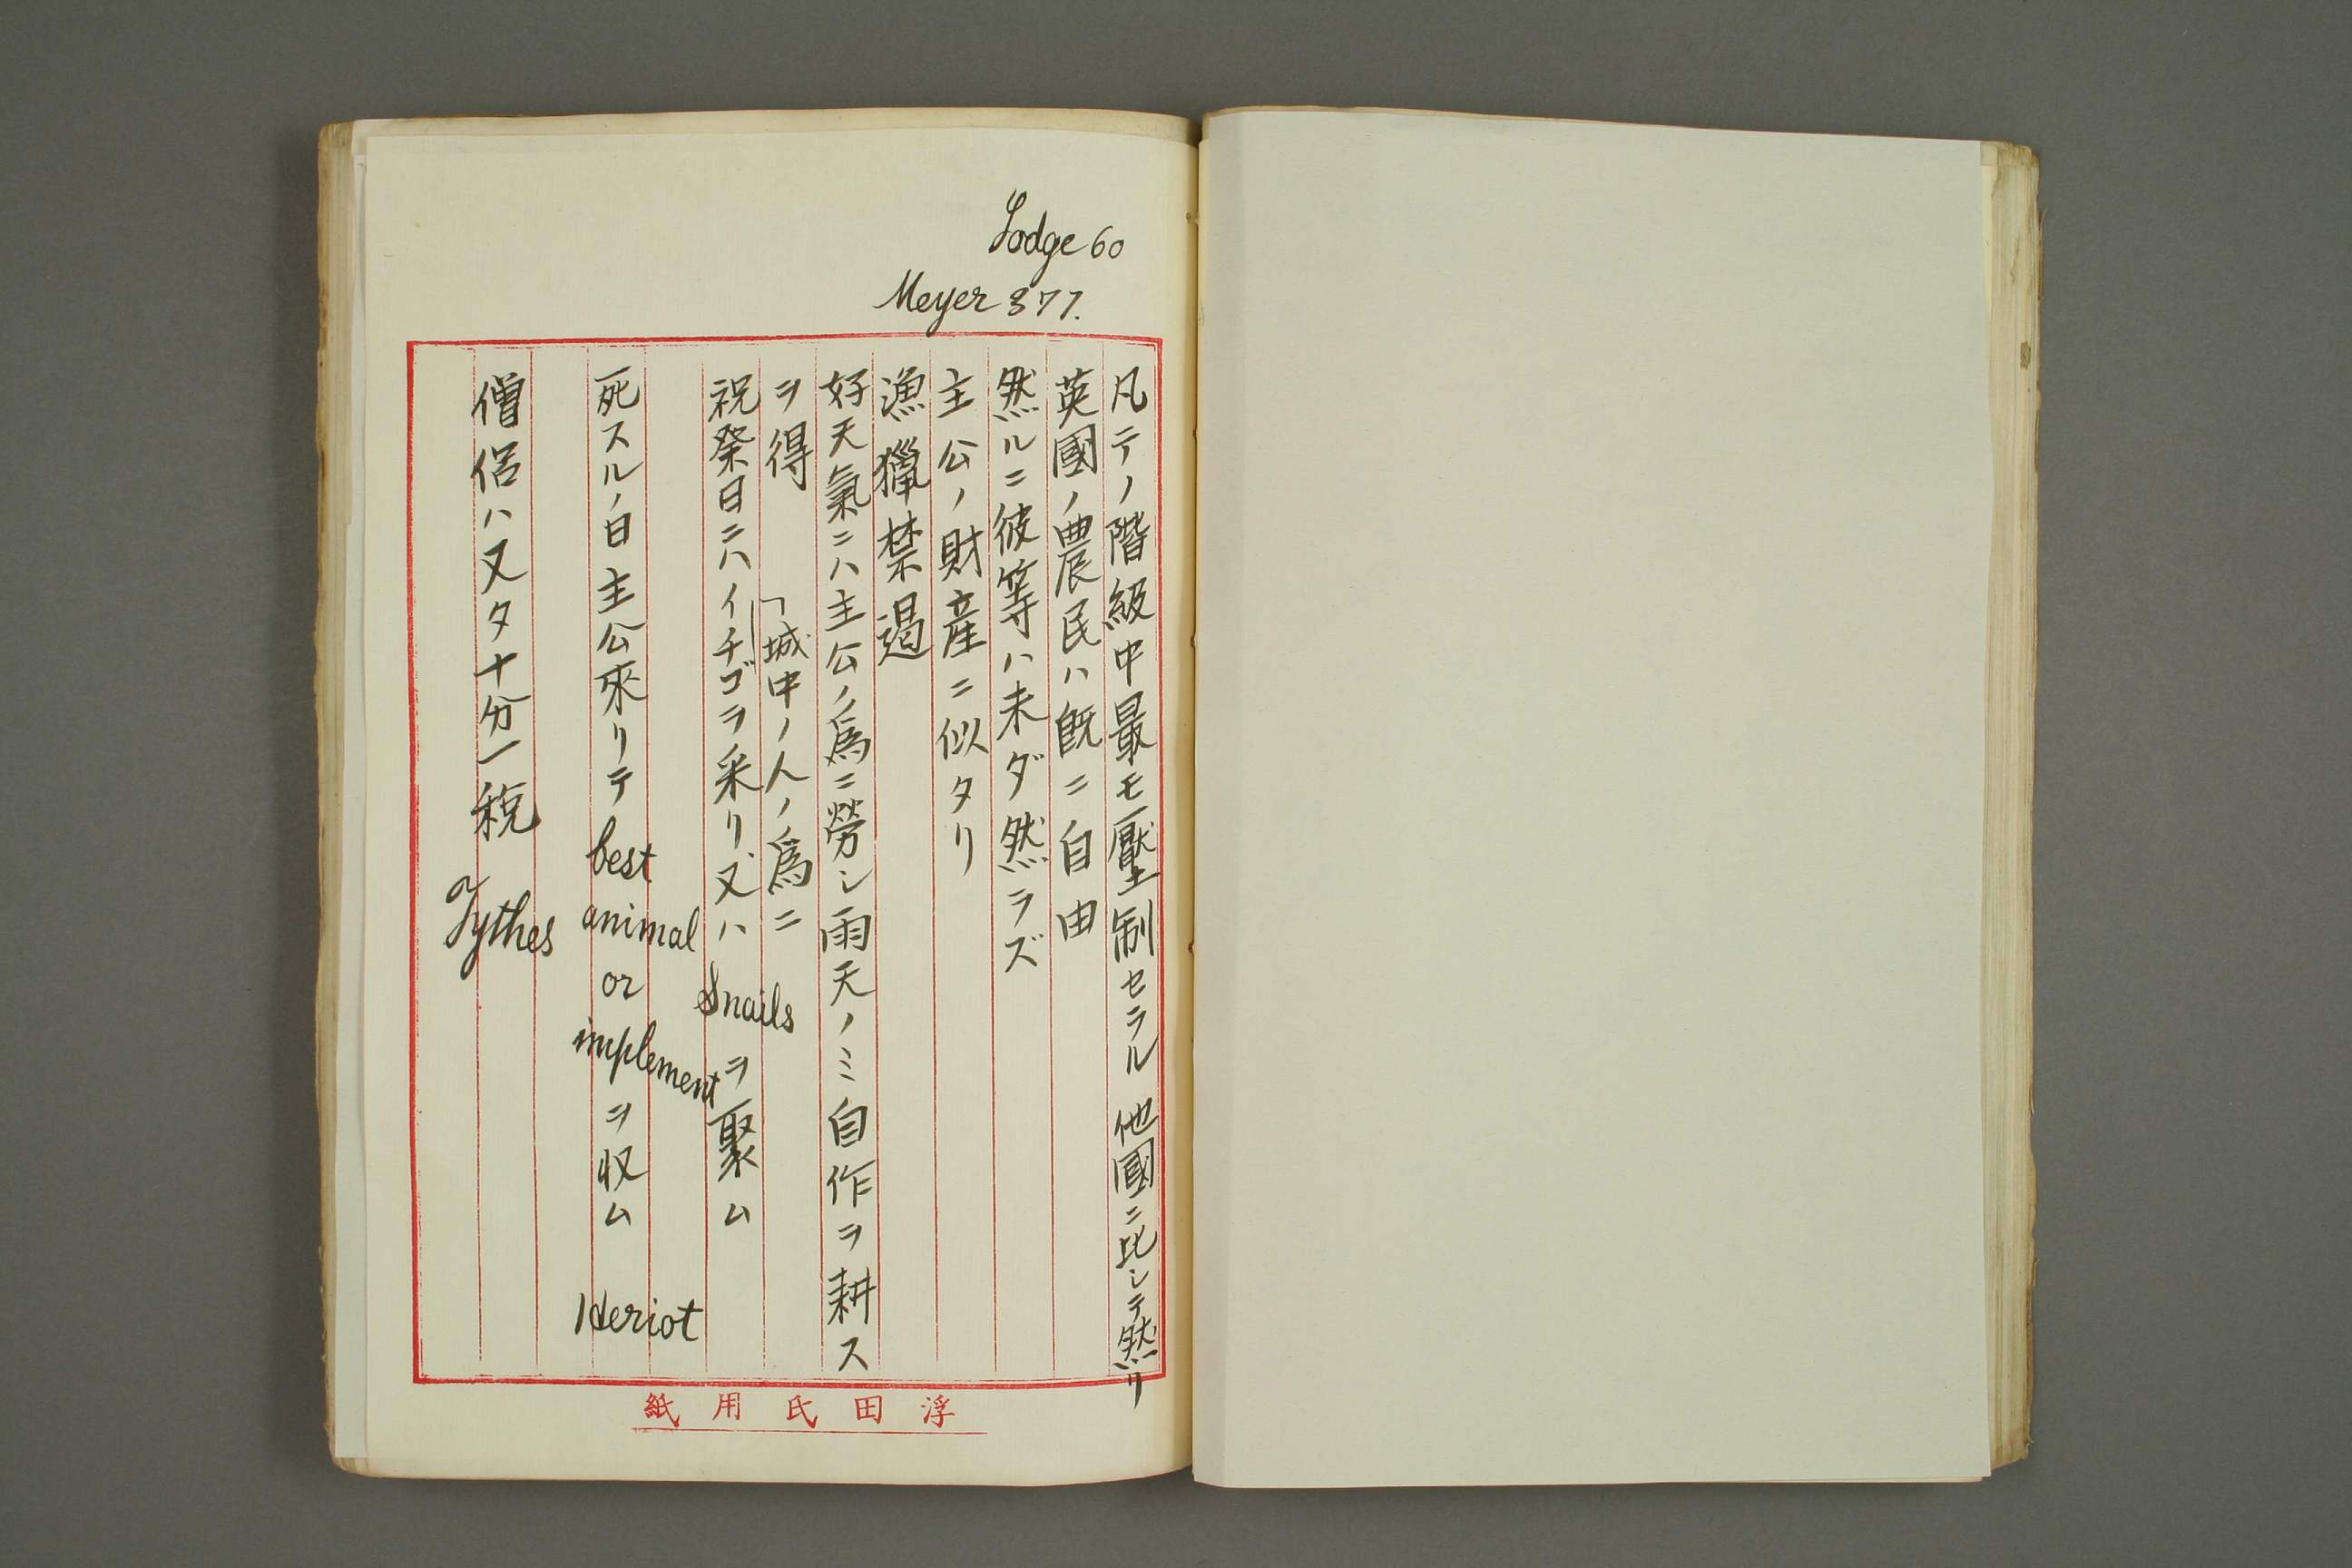 Lodge 60
Meyer 377.
凡テノ階級中最モ壓制セラル 他國ニ比シテ然リ
英國ノ農民ハ既ニ自由
然ルニ彼等ハ未ダ然ラズ
主公ノ財産ニ似タリ
漁獵禁遏
好天氣ニハ主公ノ爲ニ勞シ雨天ノミ自作ヲ耕ス
ヲ得 「城中ノ人ノ爲ニ
祝祭日ニハイチゴヲ采リ又ハ Snails ヲ聚ム
死スルノ日主公來リテ best animal or implement ヲ収ム Heriot
僧侶ハ又タ十分一税 Tythes
浮田氏用紙